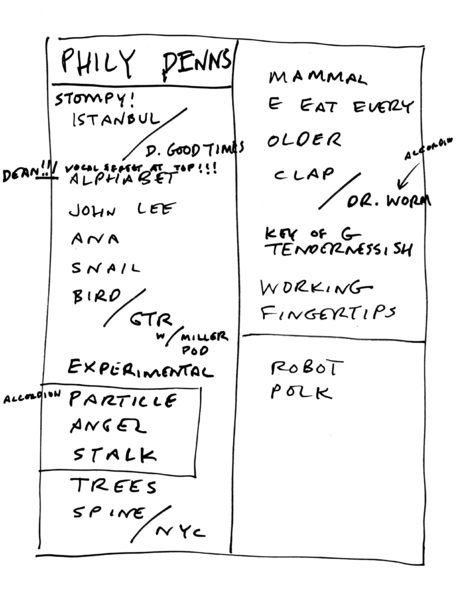 PHILY DENNS
STOMPY!
ISTANBUL /
D. GOOD TIMES
DEAN!!! VOCAL EFFECT AT TOP!!!
ALPHABET
JOHN LEE
ANA
SNAIL
BIRD /
GTR
W/ MILLER
POD
EXPERIMENTAL
ACCORDION PARTICLE
ANGEL
STALK
TREES
SPINE / NYC
MAMMAL
E EAT EVERY
OLDER
ACCORDION
CLAP /
DR. WORM
KEY OF G
TENDERNESSISH
WORKING
FINGERTIPS
ROBOT
POLK